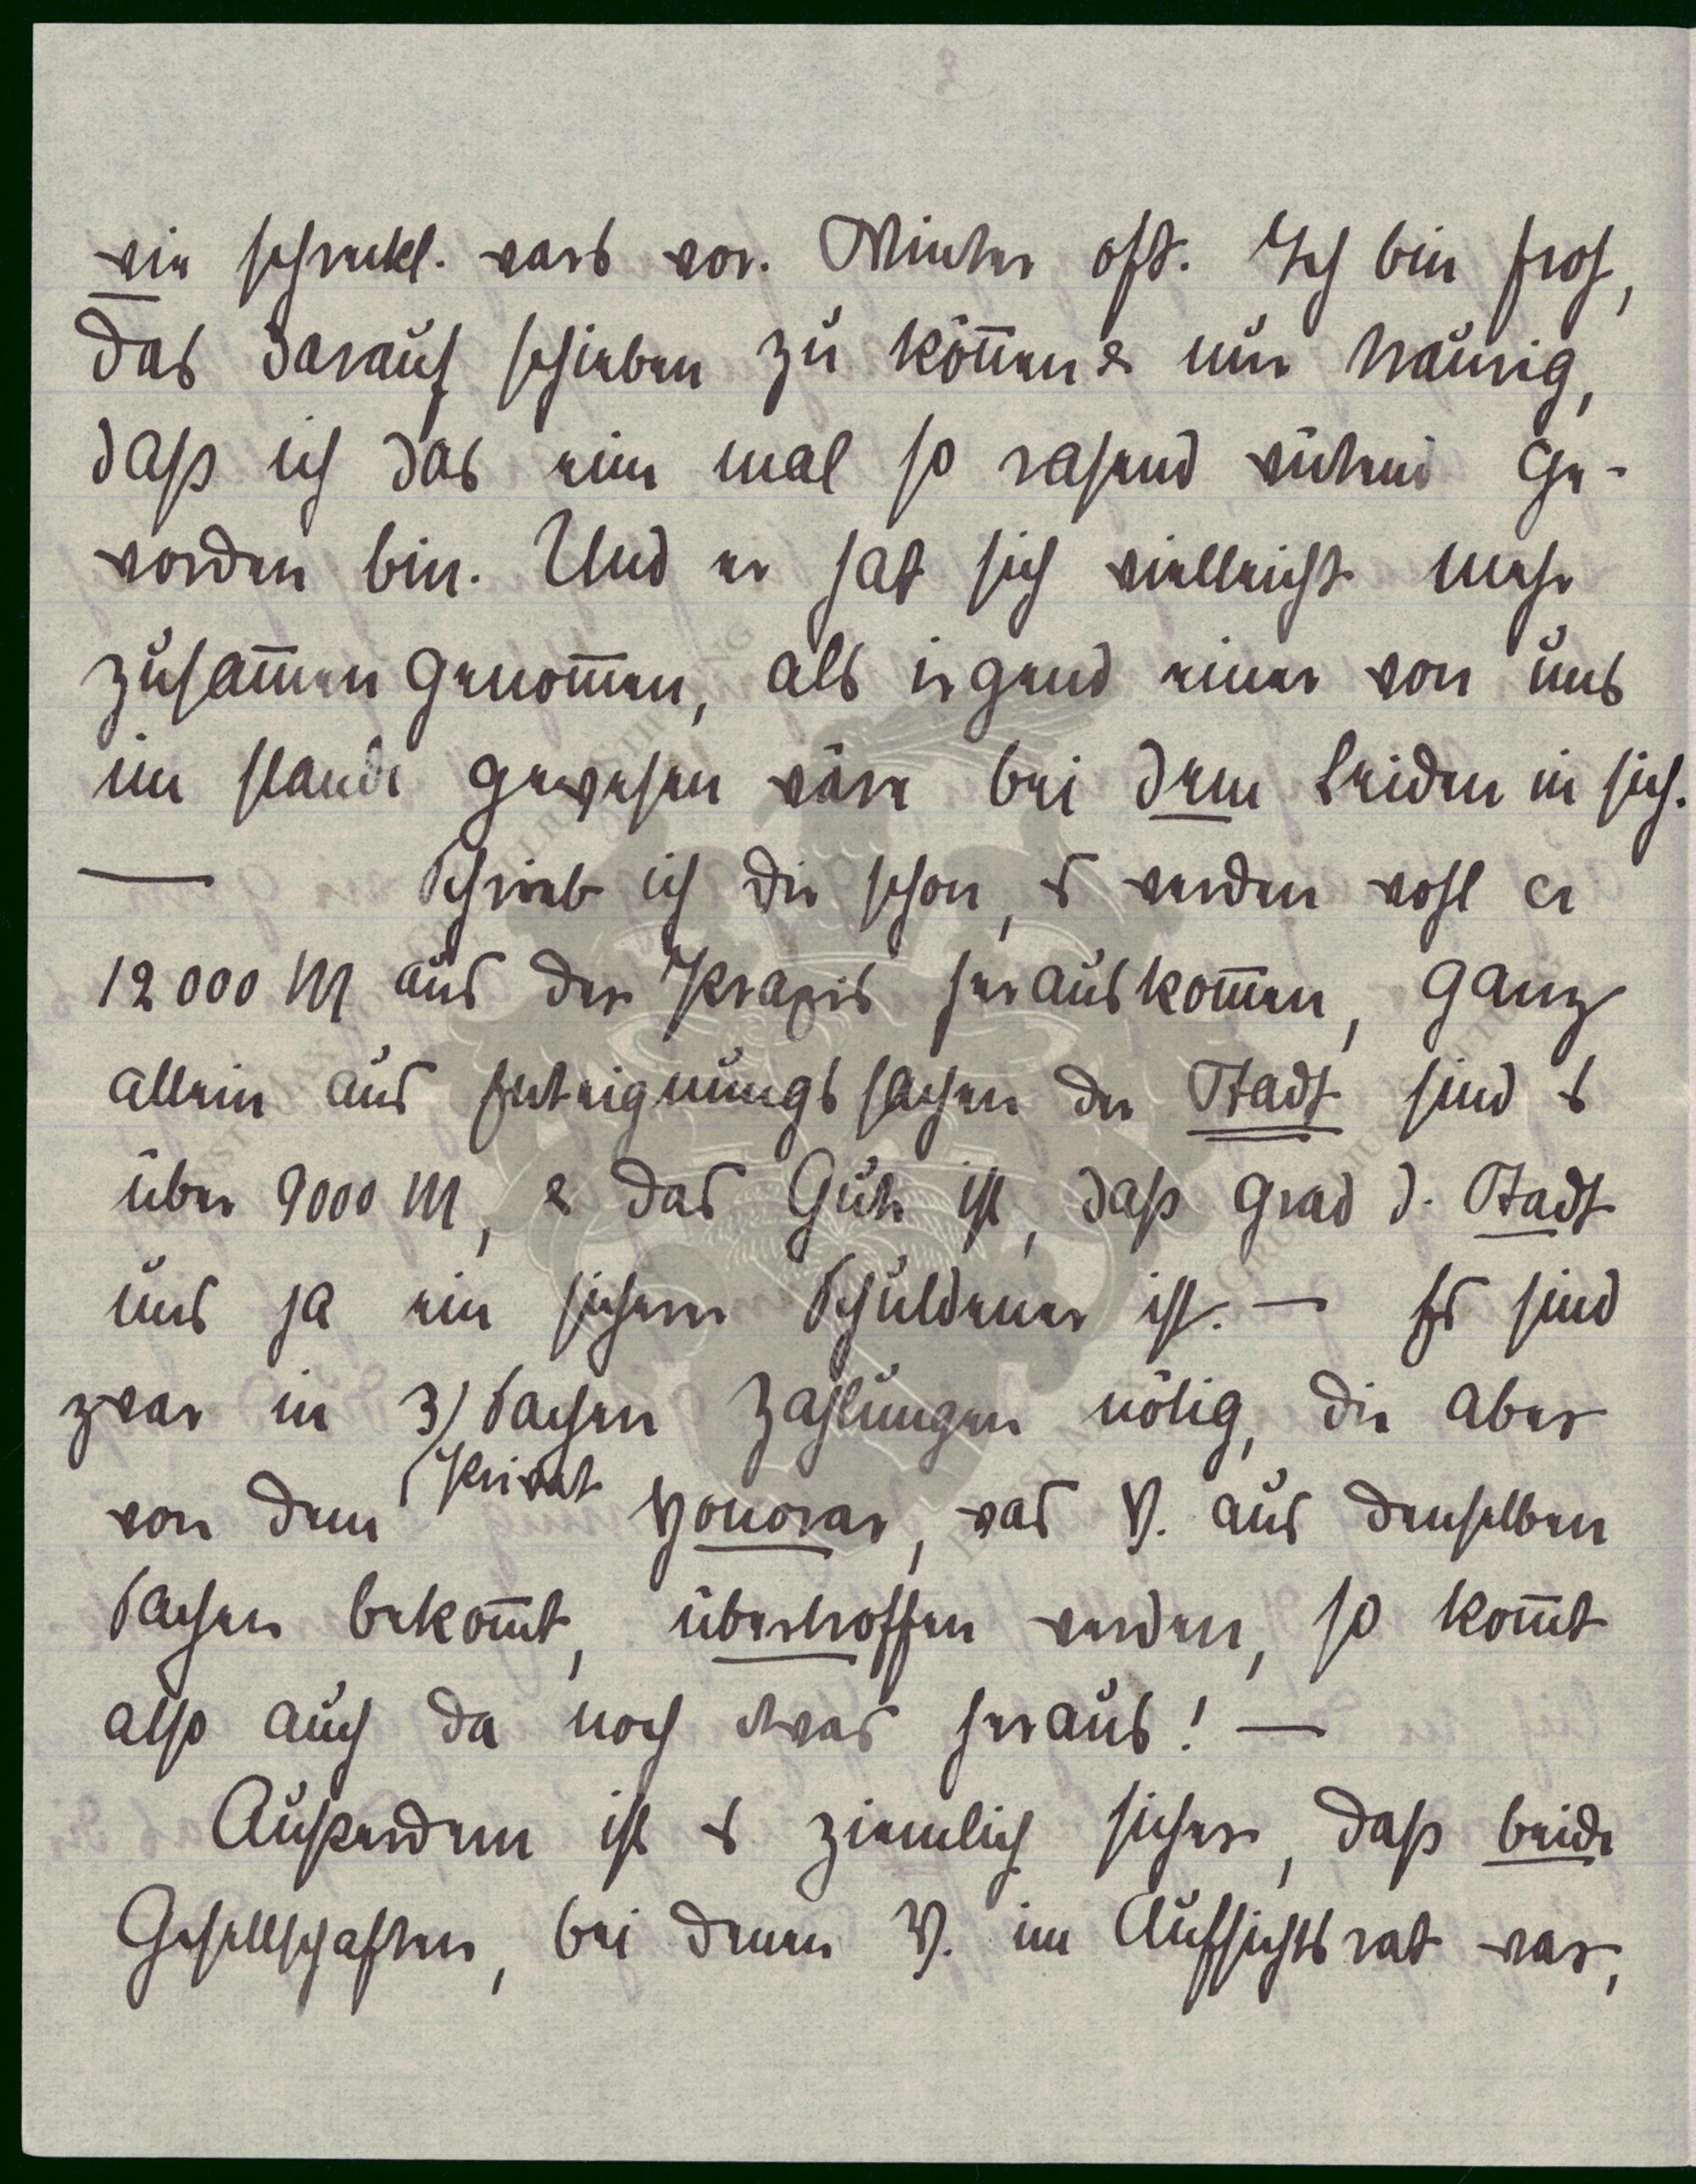 wie schreckl. wars vor. Winter oft. Ich bin froh,
das darauf schieben zu können & nur traurig,
daß ich das eine mal so rasend wütend ge-
worden bin. Und er hat sich vielleicht mehr
zusammen genommen, als irgend einer von uns
im stande gewesen wäre bei dem Leiden in sich.
— Schrieb ich dir schon, es werden wohl ca
12000 M aus der Praxis herauskommen, ganz
allein aus Enteignungssachen der Stadt sind es
über 9000 M, & das Gute ist, daß grad d. Stadt
uns ja ein sicherer Schuldener ist. — Es sind
zwar in 3) Sachen Zahlungen nötig, die aber
von dem Privat Honorar, was V. aus denselben
Sachen bekommt, übertroffen werden, so kommt
also auch da noch etwas heraus! —
Außerdem ist es ziemlich sicher, daß beide
Gesellschaften, bei denen V. im Aufsichtsrat war,